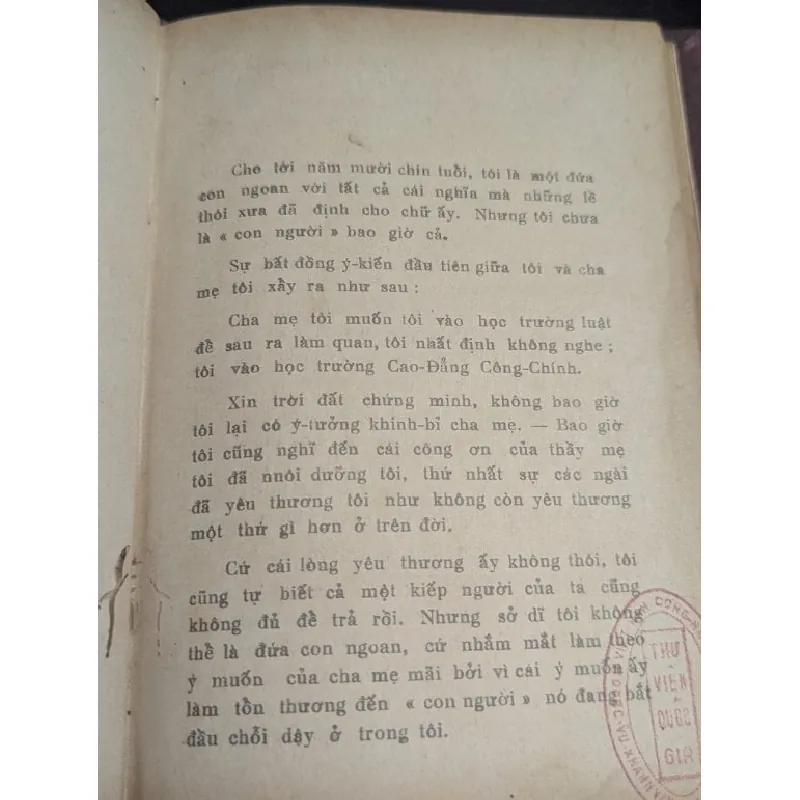 Cho tới năm mười chín tuổi, tôi là một đứa
con ngoan với tất cả cái nghĩa mà những lề
thói xưa đã định cho chữ ấy. Nhưng tôi chưa
là « con người » bao giờ cả.
Sự bất đồng ý-kiến đầu tiên giữa tôi và cha
mẹ tôi xẩy ra như sau :
Cha mẹ tôi muốn tôi vào học trường luật
để sau ra làm quan, tôi nhất định không nghe ;
tôi vào học trường Cao-Đẳng Công-Chính.
Xin trời đất chứng minh, không bao giờ
tôi lại có ý-tưởng khinh-bỉ cha mẹ. — Bao giờ
tôi cũng nghĩ đến cái công ơn của thầy mẹ
tôi đã nuôi dưỡng tôi, thứ nhất sự các ngài
đã yêu thương tôi như không còn yêu thương
một thứ gì hơn ở trên đời.
Cứ cái lòng yêu thương ấy không thôi, tôi
cũng tự biết cả một kiếp người của ta cũng
không đủ để trả rồi. Nhưng sở dĩ tôi không
thể là đứa con ngoan, cứ nhắm mắt làm theo
ý muốn của cha mẹ mãi bởi vì cái ý muốn ấy
làm tổn thương đến « con người » nó đang bắt
đầu chỗi dậy ở trong tôi.
THƯ
VIỆN
QUỐC
GIA